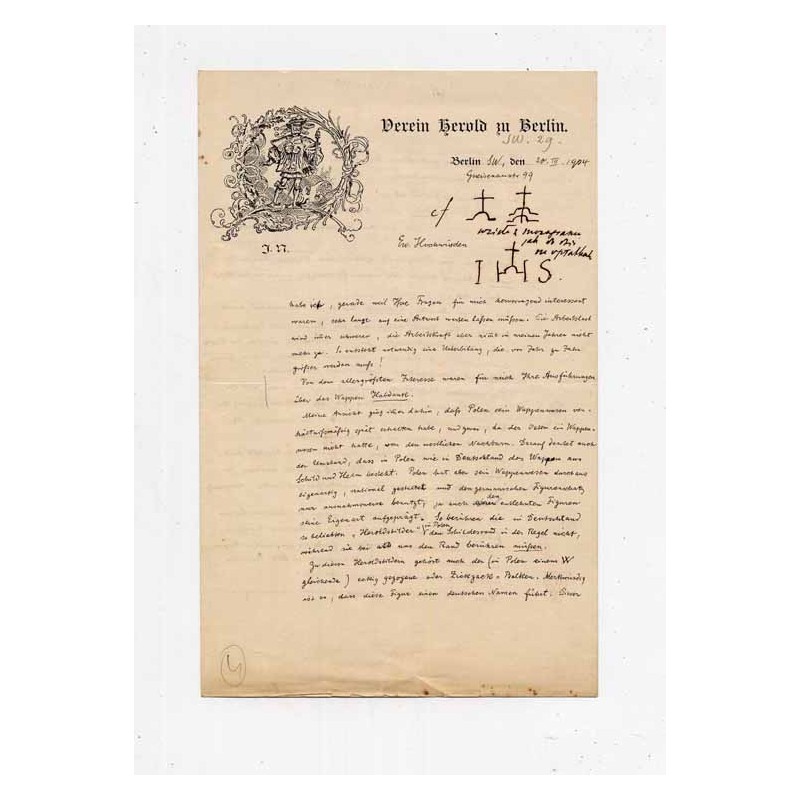 Verein Herold zu Berlin.
SW. 29.
Berlin SW, den 20. III. 1904
Gneisenaustr 99
cf
J. N.
Ew. Hochwürden
wzięte z
jak
na opłatkach
I H S.
habe ich, gerade weil Ihre Fragen für mich hervorragend interessant
waren, sehr lange auf eine Antwort warten lassen müssen. Die Arbeitslast
wird immer schwerer, die Arbeitskraft aber nimmt in meinen Jahren nicht
mehr zu. So entsteht notwendig eine Ueberlastung, die von Jahr zu Jahr
größer werden muß!
Von dem allergrößten Interesse waren für mich Ihre Ausführungen
über das Wappen Habdank.
Meine Ansicht ging immer dahin, daß Polen sein Wappenwesen ver-
hältnißmäßig spät erhalten habe, und zwar, da der Osten ein Wappen-
wesen nicht hatte, von den westlichen Nachbarn. Darauf deutet auch
der Umstand, dass in Polen wie in Deutschland das Wappen aus
Schild und Helm besteht. Polen hat aber sein Wappenwesen durchaus
eigenartig, national gestaltet und den germanischen Figurenschatz
nur ausnahmsweise benutzt, ja auch den entlehnten Figuren
seine Eigenart aufgeprägt. So berühren die in Deutschland
so beliebten "Heroldsbilder" in Polen den Schildesrand in der Regel nicht,
während sie bei uns den Rand berühren müssen.
Zu diesen Heroldsbildern gehört auch der (in Polen einem W
gleichende) eckig gezogene oder Zickzack-Balken. Merkwürdig
ist es, dass diese Figur einen deutschen Namen führt. Einer
4